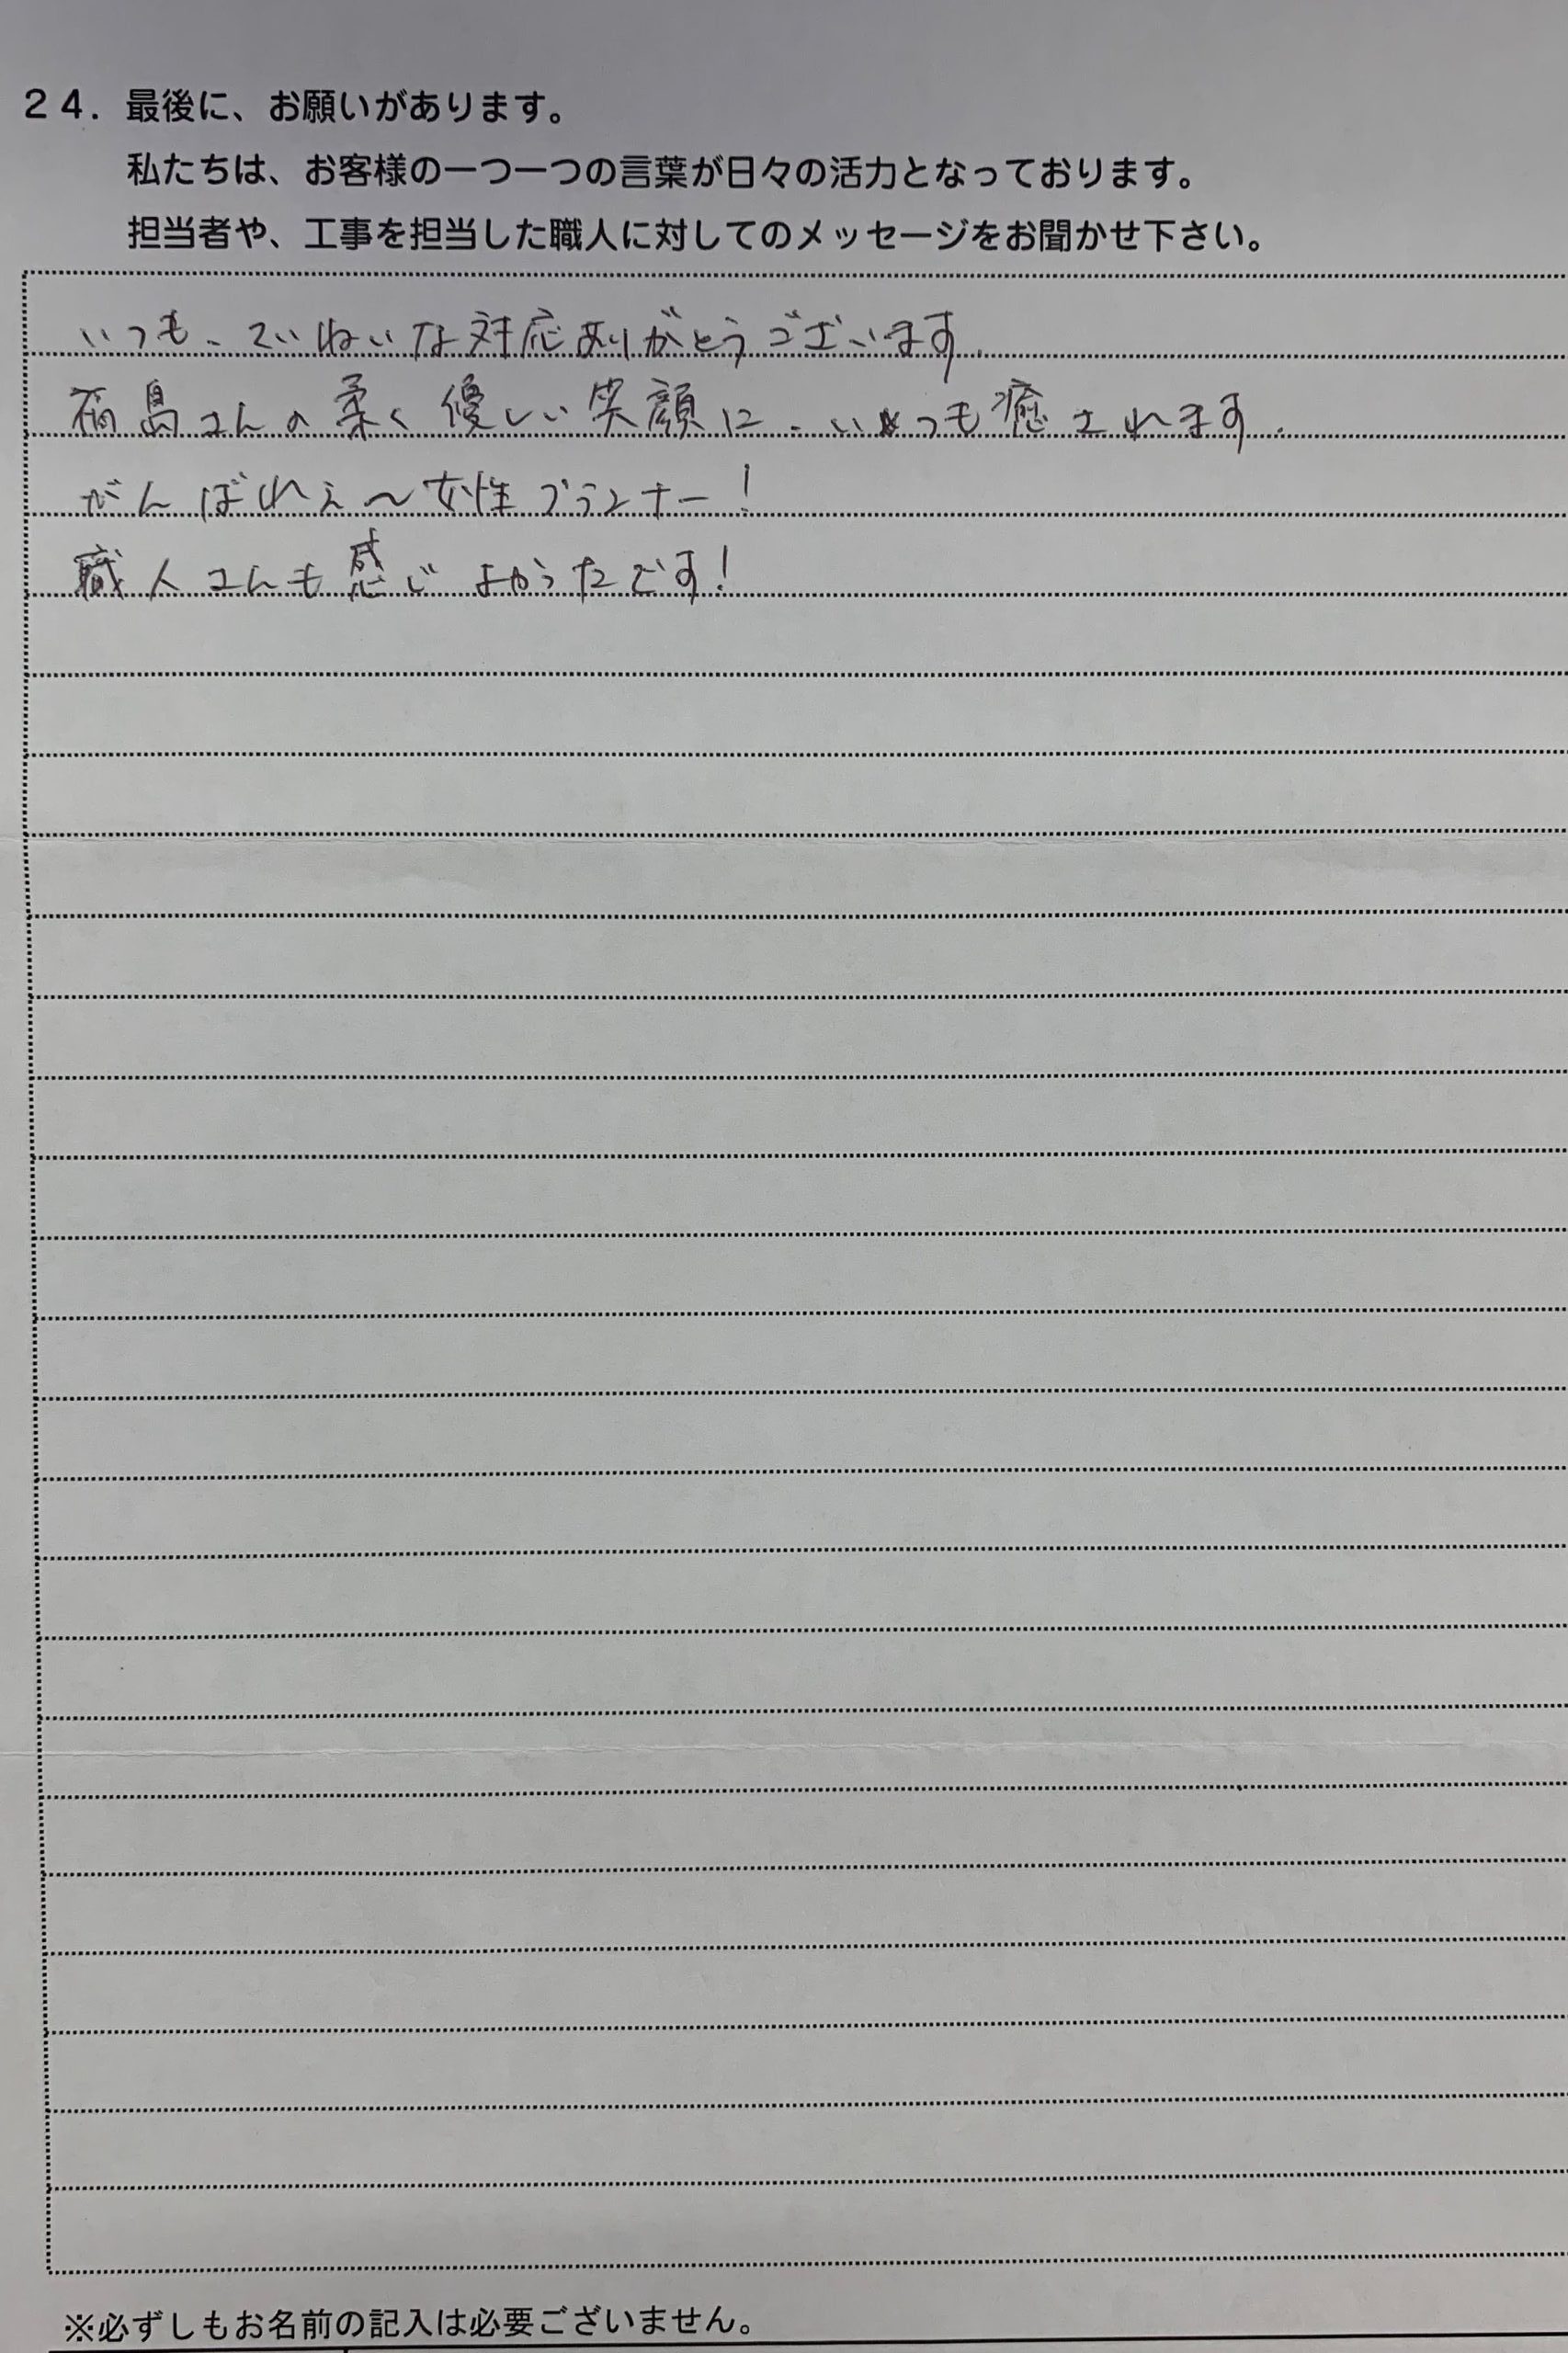 24. 最後に、お願いがあります。
私たちは、お客様の一つ一つの言葉が日々の活力となっております。
担当者や、工事を担当した職人に対してのメッセージをお聞かせ下さい。
いつも、ていねいな対応ありがとうございます。
福島さんの柔く優しい笑顔に、いつも癒されます。
がんばれぇ〜女性プランナー!
職人さんも感じよかったです!
※必ずしもお名前の記入は必要ございません。